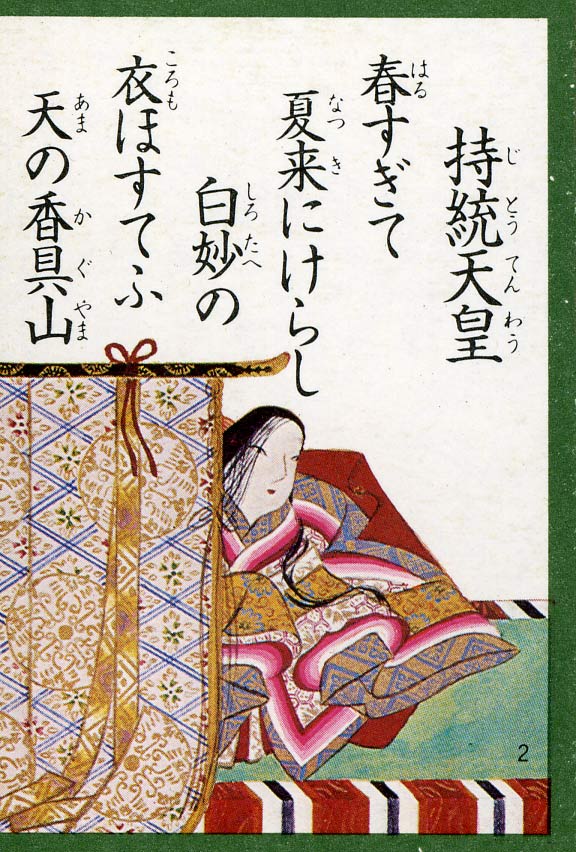 持統天皇
じとうてんわう
春すぎて
はる
夏来にけらし
なつき
白妙の
しろたへ
衣ほすてふ
ころも
天の香具山
あまかぐやま
2